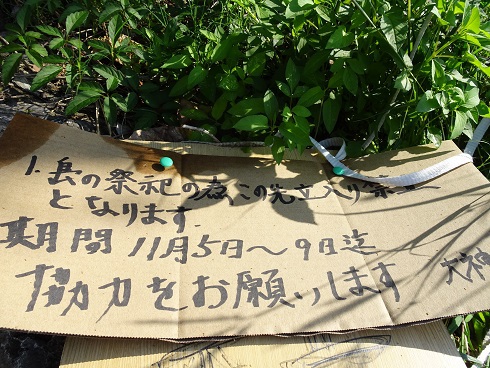 1.兵の祭祀の為この先立入り禁止
となります
期間 11月5日〜9日迄
協力をお願いします
大神